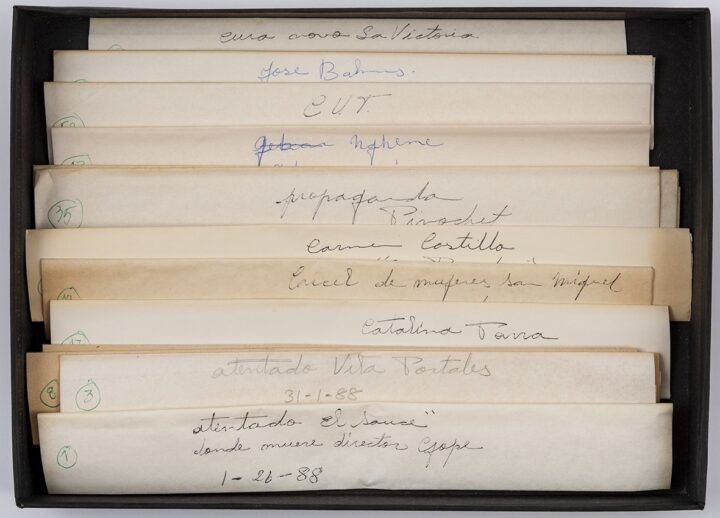 Cura novo La Victoria
Jose Balmes.
C.U.T.
Ngheme
35
propaganda
Pinochet
Carmen Castillo
Carcel de mujeres San Miguel
Catalina Parra
17
8
3
atentado Villa Portales
31-1-88
atentado El Sauce"
donde muere director Gope
1
1-26-88